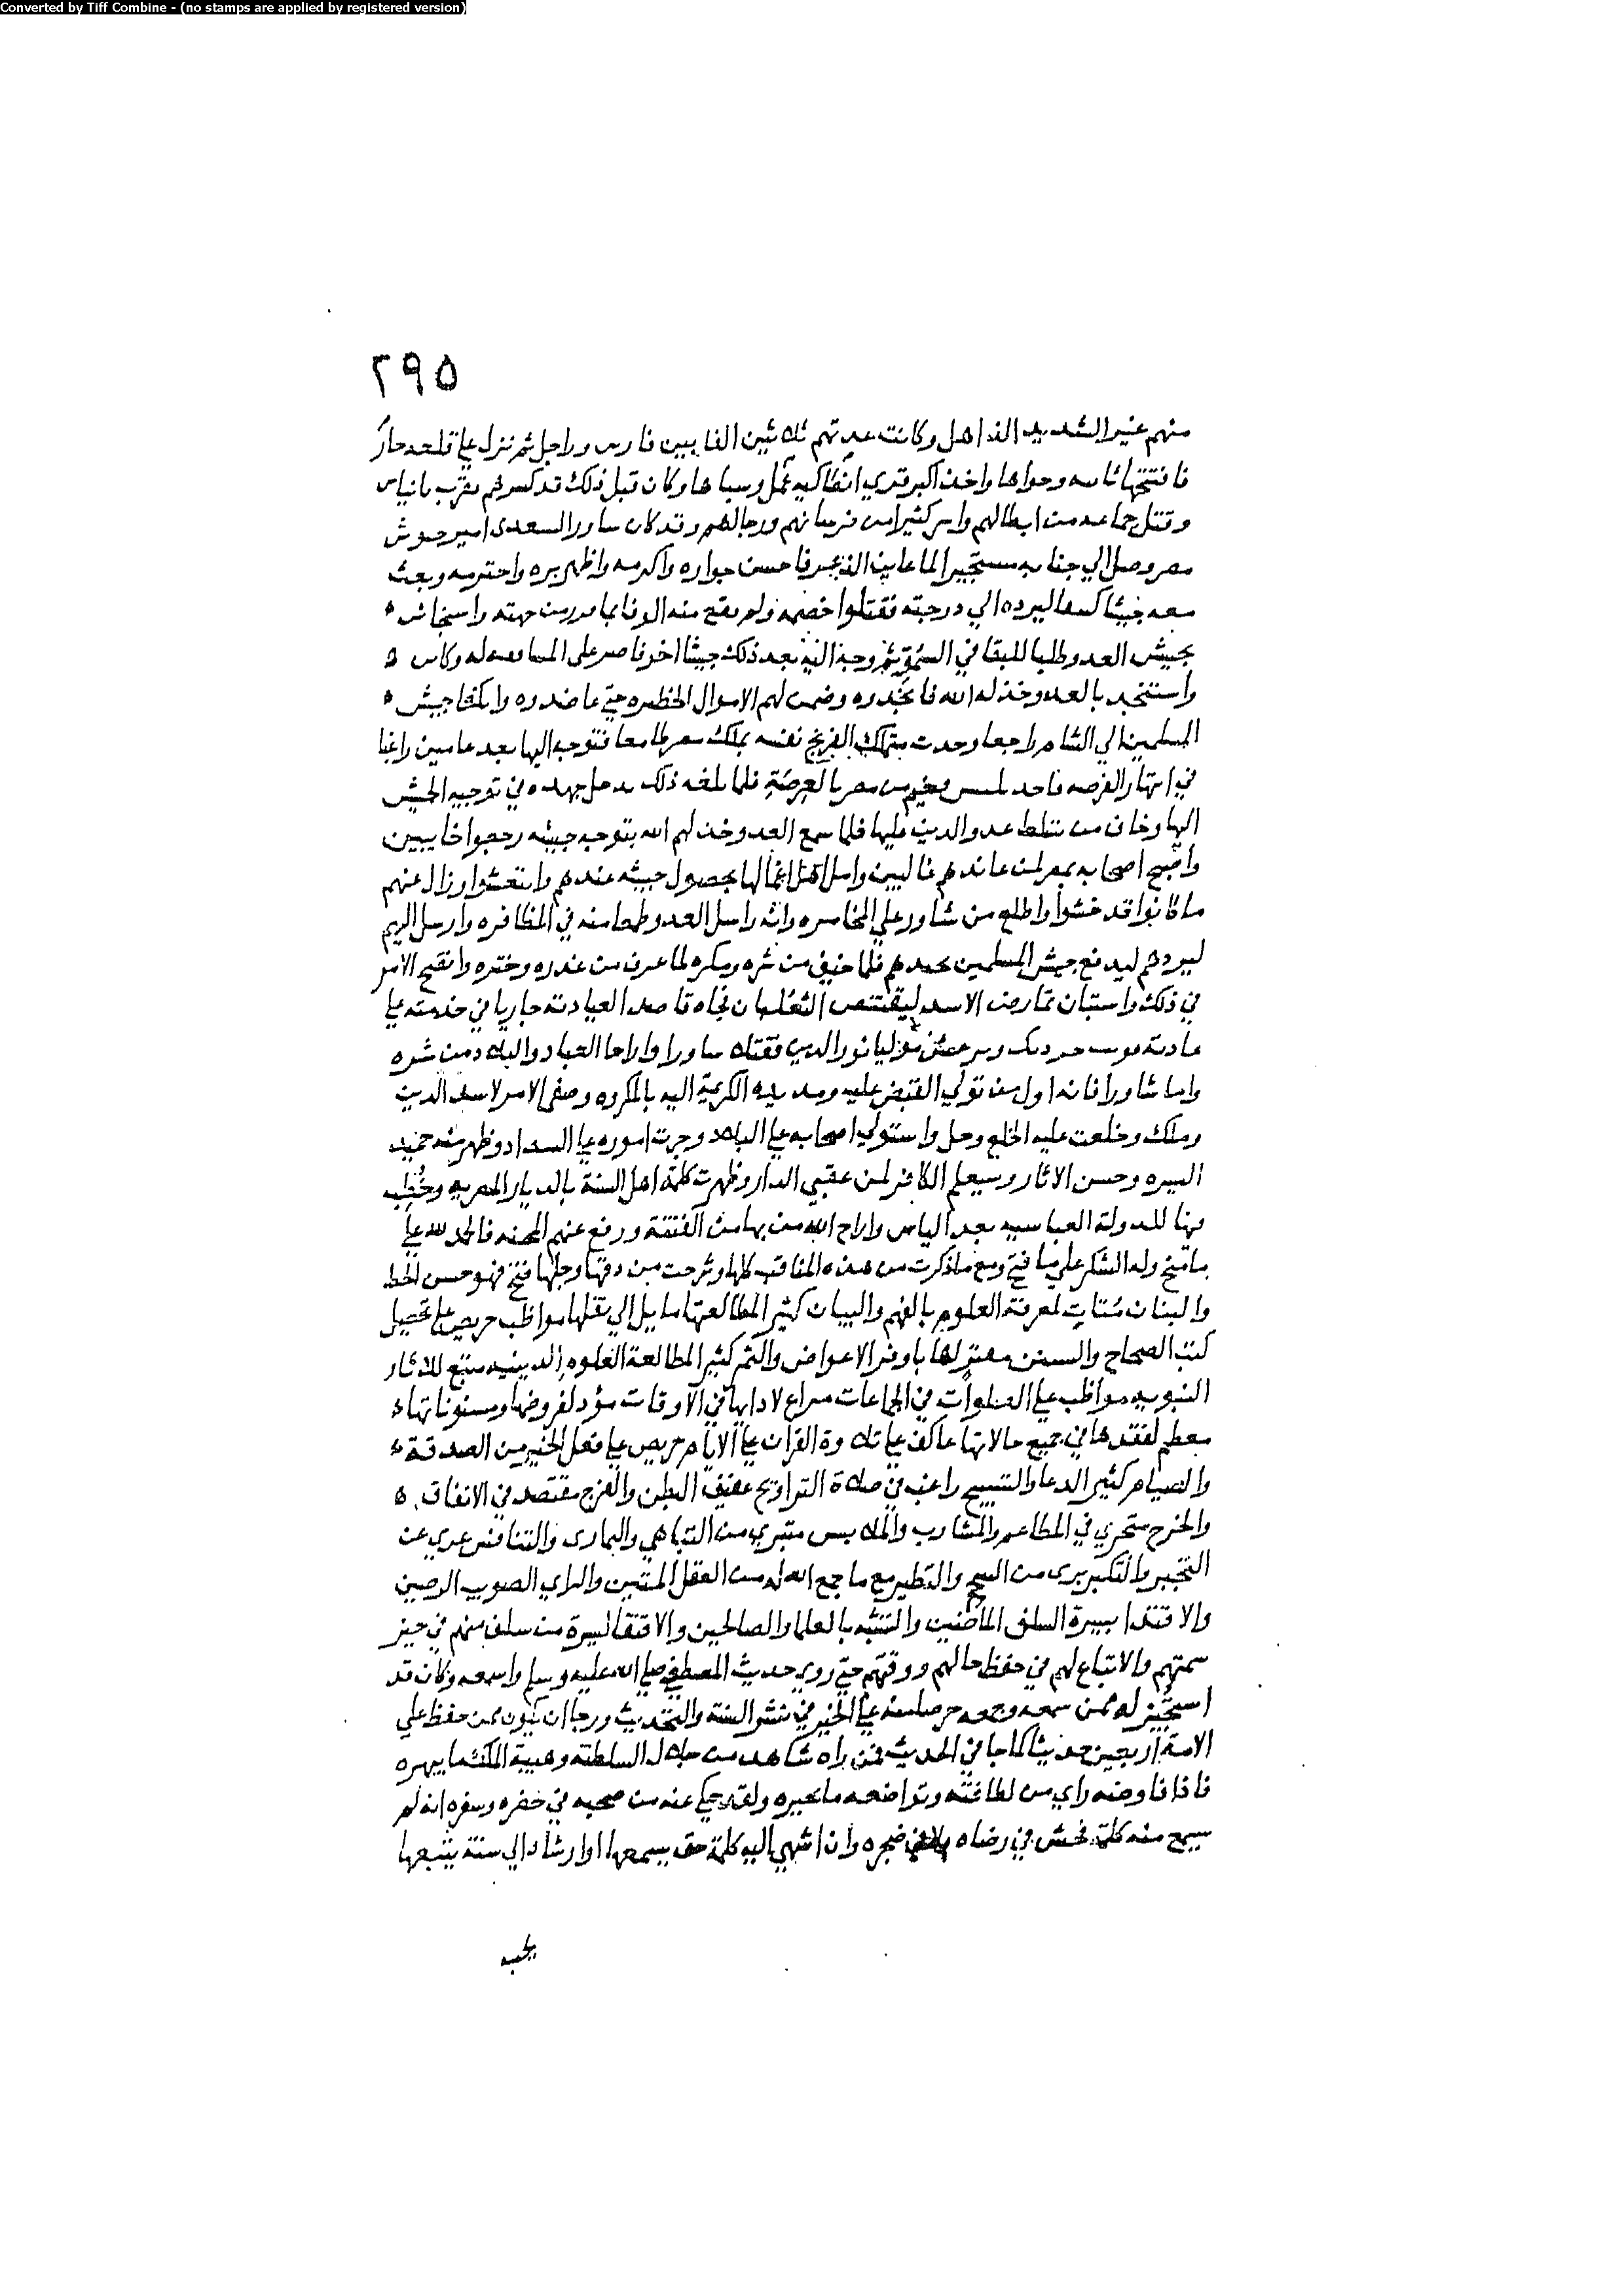 Converted by Tiff Combine - (no stamps are applied by registered version)
٢٩٥
منهم غير الشديد الذاهل وكانت عدتهم ثلاثين الفا بين فارس وراجل ثم نزل علي قلعه حارم
فافتتحها ثانيه وحواها واخذ اكبر قري انطاكيه عمل وسباها وكان قبل ذلك قد كسرهم بقرب بانياس
وقتل جماعه من ابطالهم واسر كثيرا من فرسانهم ورجالهم وقد كان شاور السعدى امير جيوش
مصر وصل الي جنابه مستجيرا لما عاين الذعر فاحسن جواره واكرمه واظهر بره واحترمه وبعث
معه جيشا كثيفا ليرده الي درجته فقتلوا خصمه ولم يقع منه الوفا بما قرر من جهته واستجاش
بجيش العدو طلبا للبقا في السمو ثم وجه اليه بعد ذلك جيشا اخر فاصر على المشاققه له وكابر
واستنجد بالعدو خذله الله فانجدوه وضمن لهم الاموال الخطيره حتي عاضدوه وانكفا جيش
المسلمين الي الشام راجعا وحدث متملك الفرنج نفسه بملك مصر طامعا فتوجه اليها بعد عامين راغبا
في انتهاز الفرصه فاخد بلبيس وخيم من مصر بالعرصة فلما بلغه ذلك بدل جهده في توجيه الجيش
اليها وخاف من تسلط عدو الدين عليها فلما سمع العدو خذلهم الله بتوجه جيشه رجعوا خايبين
واصبح اصحابه بمصر لمن عاندهم غالبين وامل اهل اعمالها بحصول جيشه عندهم وانتعشوا وزال عنهم
ما كانوا قد خشوا واطلع من شاور علي المخامره وانه راسل العدو طمعا منه في المظافره وارسل اليهم
ليردهم ليدفع جيش المسلمين بجندهم فلما خيف من شره ومكره لما عرف من غدره وختره واتضح الامر
في ذلك واستبان تمارض الاسد ليقتنص الثعلبان فجاه قاصدا لعيادته جاريا في خدمته علي
عادته فوثب جرديك وبرغش موليا نور الدين فقتلا شاورا واراحا العباد والبلاد من شره
واما شاور فانه اول من تولي القبض عليه ومد يده الكريمة اليه بالمكروه وصفى الامر لاسد الدين
وملك وخلعت عليه الخلع وحل واستولي اصحابه علي البلاد وجرت اموره علي السداد وظهر منه حميد
السيره وحسن الاثار وسيعلم الكافر لمن عقبي الدار وظهرت كلمة اهل السنة بالديار المصريه وخطب
فيها للدولة العباسيه بعد الياس واراح الله من بها من الفتنة ورفع عنهم المحنه فالحمد لله علي
ما منح وله الشكر علي ما فتح ومع ما ذكرت من هذه المناقب كلها وشرحت من دقها وجلها فهو حسن الخط
والبنان متات لمعرفة العلوم بالفهم والبيان كثير المطالعة لها مايل الي نقلها مواظب حريص علي تحصيل
كتب الصحاح والسنن مقتن لها باوفر الاعواض والثمن كثير المطالعة للعلوم الدينيه متتبع للاثار
النبويه مواظب علي الصلوات في الجماعات مراع لادابها في الاوقات مؤد لفروضها ومسنوناتها
معظم لفقدها في جميع حالاتها عاكف علي تلاوة القران علي الايام حريص علي فعل الخير من الصدقة
والصيام كثير الدعا والتسبيح راغب في صلاة التراويح عفيف البطن والفرج مقتصد في الانفاق
والخرج متحري في المطاعم والمشارب والملابس متبري من التباهي والتمارى والتنافس عري عن
التجبر والتكبر برى من التنجيم والتطير مع ما جمع الله له من العقل المتين والراي الصويب الرصين
والاقتدا بسيرة السلف الماضين والتشبه بالعلما والصالحين والاقتفا لسيرة من سلف منهم في حسن
سمتهم والاتباع لهم في حفظ حالهم ووقتهم حتي روي حديث المصطفي صلي الله عليه وسلم واسمعه وكان قد
استجيز له ممن سمعه وجمعه حرصا منه علي الخير في نشر السنة والتحديث ورجا ان يكون ممن حفظ علي
الامة اربعين حديثا كما جا في الحديث فمن راه شاهد من جلال السلطنة وهيبة الملك ما يبهره
فاذا فاوضه راي من لطافته وتواضعه ما يحيره ولقد حكي عنه من صحبه في حضره وسفره انه لم
يسمع منه كلمة فحش في رضاه ولا في ضجره وان اشهي اليه كلمة حق يسمعها او ارشاد الي سنة يتبعها
يحب